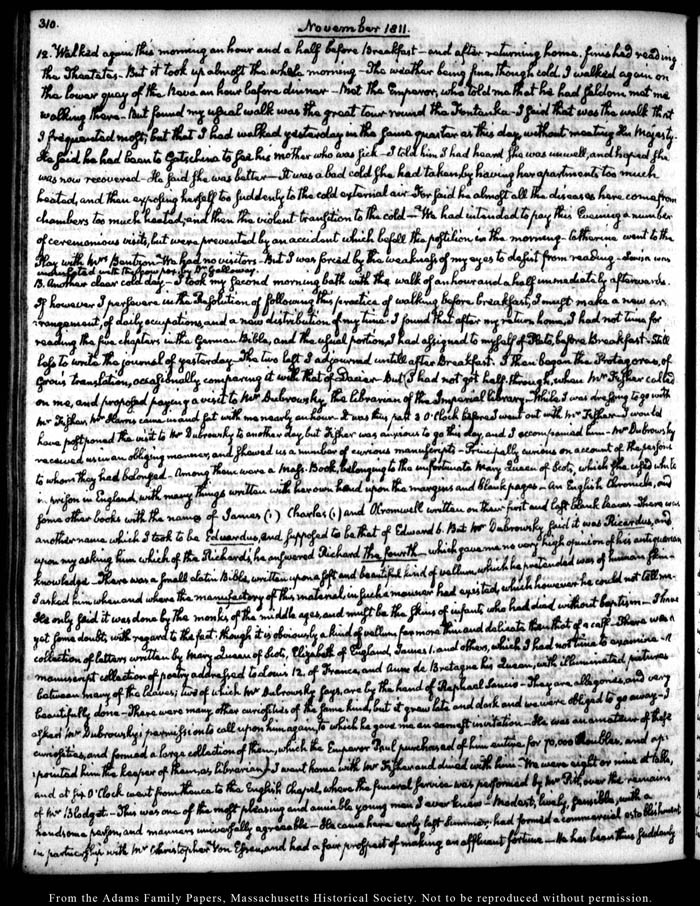 310.
November 1811.
12. Walked again this morning an hour and a half before Breakfast – and after returning home, finished reading
the Theatetas – But it took up almost the whole morning – The weather being fine, though cold, I walked again on
the lower quay of the Neva an hour before dinner – Met the Emperor, who told me that he had seldom met me
walking there – But found my usual walk was the great tour round the Fontanka – I said that was the walk that
I frequented most; but that I had walked yesterday in the same quarter as this day, without meeting His Majesty.
He said he had been to Gatschina to see his mother who was sick – I told him I had heard she was unwell, and hoped she
was now recovered – He said she was better – It was a bad cold she had taken by having her apartments too much
heated, and then exposing herself too suddenly to the cold external air – For said he almost all the diseases here come from
chambers too much heated, and then the violent transition to the cold – We had intended to pay this Evening a number
of ceremonious visits, but were prevented by an accident which befell the postilion in the morning – Catherine went to the
Play with Mrs Bentzon – We had no visitors – But I was forced by the weakness of my eyes to desist from reading – Louisa was
inoculated with the cow pox, by Dr Galloway.
13. Another clear cold day – I took my second morning bath with the walk of an hour and a half immediately afterwards.
If however I persevere in the Resolution of following this practice of walking before breakfast, I must make a new ar-
rangement, of daily occupations, and a new distribution of my time. I found that after my return home, I had not time for
reading the five chapters in the German Bible, and the usual portion, I had assigned to myself of Plato, before Breakfast – Still
less to write the journal of yesterday. The two last I adjourned untill after Breakfast. I then began the Protagoras, of
Grous translation, occasionally comparing it with that of Dacier – But I had not got half through, when Mr Fisher called
on me, and proposed paying a visit to Mr Dubrowsky, the Librarian of the Imperial Library – While I was dressing to go with
Mr Fisher, Mr Harris came in and sat with me nearly an hour. It was thus past 2 O'Clock before I went out with Mr Fisher – I would
have postponed the visit to Mr Dubrowsky to another day, but Fisher was anxious to go this day, and I accompanied him – Mr Dubrowsky
received us in an obliging manner, and shewed us a number of curious manuscripts – Principally curious on account of the persons
to whom they had belonged – Among them were a Mass-Book, belonging to the unfortunate Mary Queen of Scots, which she used while
in prison in England, with many things written with her own hand upon the margins and blank pages – An English Chronicle, and
some other books with the names of James (1) Charles (1) and Cromwell written on their first and last blank leaves – There was
another name which I took to be Eduardus, and supposed to be that of Edward 6. But Mr Dubrowsky said it was Ricardus, and
upon my asking him which of the Richards, he answered Richard the fourth – which gave me no very high opinion of his antiquarian
knowledge – There was a small Latin Bible, written upon a soft and beautiful kind of vellum, which he pretended was of human skin
I asked him when and where the manufactory of this material in such a manner had existed, which however he could not tell me.
He only said it was done by the monks of the middle ages and must be the skins of infants, who had died without baptism – I have
yet some doubts, with regard to the fact, though it is obviously a kind of vellum far more thin and delicate than that of a calf. There was a
collection of letters written by Mary Queen of Scots, Elizabeth of England, James 1. and others, which I had not time to examine – A
manuscript collection of poetry addressed to Louis 12. of France, and Anne de Bretagne his Queen, with illuminated pictures
between many of the leaves; two of which Mr Dubrowsky says, are by the hand of Raphael Sanzio – They are allegories, and very
beautifully done – There were many other curiosities of the same kind, but it grew late and dark and we were obliged to go away – I
asked Mr Dubrowsky's permission to call upon him again, to which he gave me an earnest invitation – He was an amateur of these
curiosities, and formed a large collection of them, which the Emperor Paul purchased of him entire, for 70,000 Roubles, and ap-
pointed him the keeper of them, as librarian. I went home with Mr Fisher and dined with him – We were eight or nine at table,
and at six O'Clock went from thence to the English Chapel, where the funeral service was performed by Mr Pitt, over the remains
of Mr Blodget – This was one of the most pleasing and amiable young men I ever knew – Modest, lively, sensible, with a
handsome person, and manners universally agreeable – He came here early last summer, had formed a commercial establishment
in partnership with Mr Christopher Von Essen, and had a fair prospect of making an affluent fortune – He has been thus suddenly
From the Adams Family Papers, Massachusetts Historical Society. Not to be reproduced without permission.